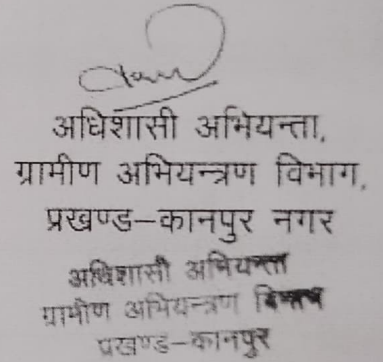 अधिशासी अभियन्ता,
ग्रामीण अभियन्त्रण विभाग,
प्रखण्ड–कानपुर नगर
अधिशासी अभियन्ता
ग्रामीण अभियन्त्रण विभाग
प्रखण्ड–कानपुर